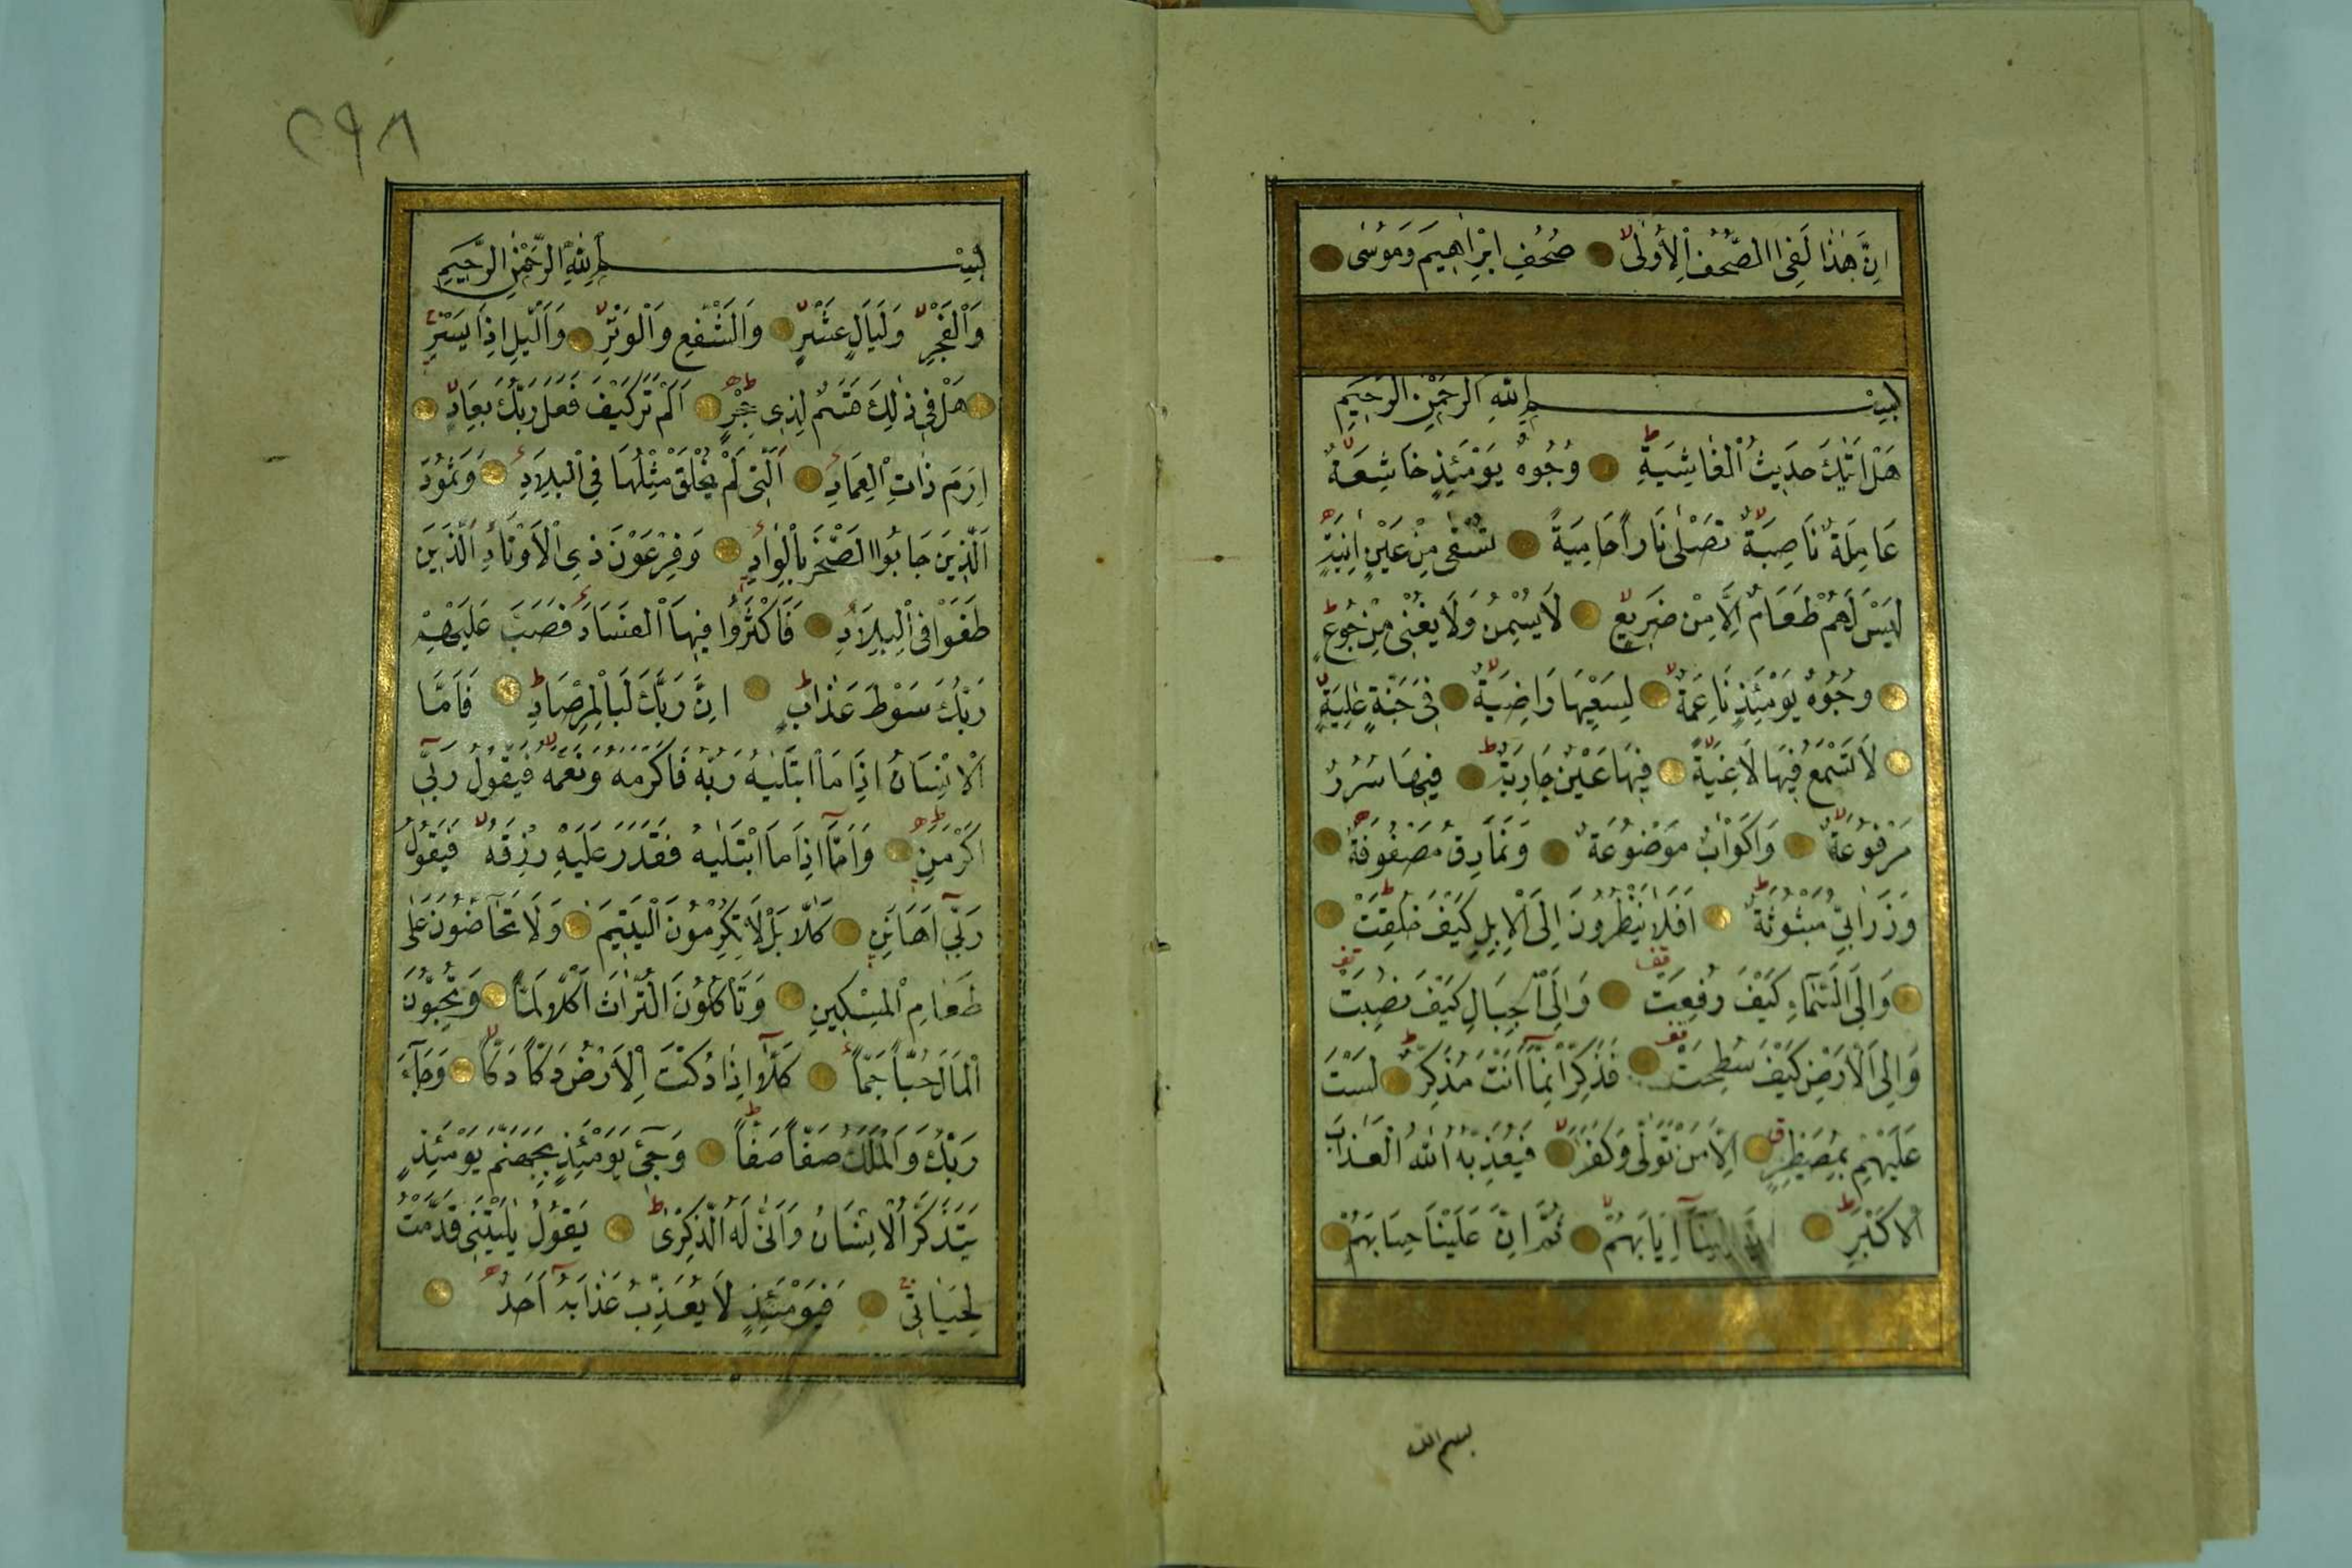 اِنَّ هٰذَا لَفِى الصُّحُفِ الْاُولٰى صُحُفِ اِبْرٰاهِيمَ وَمُوسٰى
بِسْمِ اللّٰهِ الرَّحْمٰنِ الرَّحِيمِ
هَلْ اَتٰيكَ حَدِيثُ الْغَاشِيَةِ وُجُوهٌ يَوْمَئِذٍ خَاشِعَةٌ
عَامِلَةٌ نَاصِبَةٌ تَصْلٰى نَاراً حَامِيَةً تُسْقٰى مِنْ عَيْنٍ اٰنِيَةٍ
لَيْسَ لَهُمْ طَعَامٌ اِلَّا مِنْ ضَرِيعٍ لَا يُسْمِنُ وَلَا يُغْنِى مِنْ جُوعٍ
وُجُوهٌ يَوْمَئِذٍ نَاعِمَةٌ لِسَعْيِهَا رَاضِيَةٌ فِى جَنَّةٍ عَالِيَةٍ
لَا تَسْمَعُ فِيهَا لَاغِيَةً فِيهَا عَيْنٌ جَارِيَةٌ فِيهَا سُرُرٌ
مَرْفُوعَةٌ وَاَكْوَابٌ مَوْضُوعَةٌ وَنَمَارِقُ مَصْفُوفَةٌ
وَزَرَابِىُّ مَبْثُوثَةٌ اَفَلَا يَنْظُرُونَ اِلَى الْاِبِلِ كَيْفَ خُلِقَتْ
وَاِلَى السَّمَاءِ كَيْفَ رُفِعَتْ وَاِلَى الْجِبَالِ كَيْفَ نُصِبَتْ
وَاِلَى الْاَرْضِ كَيْفَ سُطِحَتْ فَذَكِّرْ اِنَّمَا اَنْتَ مُذَكِّرٌ لَسْتَ
عَلَيْهِمْ بِمُصَيْطِرٍ اِلَّا مَنْ تَوَلّٰى وَكَفَرَ فَيُعَذِّبُهُ اللّٰهُ الْعَذَابَ
الْاَكْبَرَ اِنَّ اِلَيْنَا اِيَابَهُمْ ثُمَّ اِنَّ عَلَيْنَا حِسَابَهُمْ
بسم الله
٢٩٨
بِسْمِ اللّٰهِ الرَّحْمٰنِ الرَّحِيمِ
وَالْفَجْرِ وَلَيَالٍ عَشْرٍ وَالشَّفْعِ وَالْوَتْرِ وَالَّيْلِ اِذَا يَسْرِ
هَلْ فِى ذٰلِكَ قَسَمٌ لِذِى حِجْرٍ اَلَمْ تَرَ كَيْفَ فَعَلَ رَبُّكَ بِعَادٍ
اِرَمَ ذَاتِ الْعِمَادِ اَلَّتِى لَمْ يُخْلَقْ مِثْلُهَا فِى الْبِلَادِ وَثَمُودَ
الَّذِينَ جَابُوا الصَّخْرَ بِالْوَادِ وَفِرْعَوْنَ ذِى الْاَوْتَادِ الَّذِينَ
طَغَوْا فِى الْبِلَادِ فَاَكْثَرُوا فِيهَا الْفَسَادَ فَصَبَّ عَلَيْهِمْ
رَبُّكَ سَوْطَ عَذَابٍ اِنَّ رَبَّكَ لَبِالْمِرْصَادِ فَاَمَّا
الْاِنْسَانُ اِذَا مَا ابْتَلٰيهُ رَبُّهُ فَاَكْرَمَهُ وَنَعَّمَهُ فَيَقُولُ رَبِّى
اَكْرَمَنِ وَاَمَّا اِذَا مَا ابْتَلٰيهُ فَقَدَرَ عَلَيْهِ رِزْقَهُ فَيَقُولُ
رَبِّى اَهَانَنِ كَلَّا بَلْ لَا تُكْرِمُونَ الْيَتِيمَ وَلَا تَحَاضُّونَ عَلٰى
طَعَامِ الْمِسْكِينِ وَتَأْكُلُونَ التُّرَاثَ اَكْلًا لَمًّا وَتُحِبُّونَ
الْمَالَ حُبّاً جَمّاً كَلَّا اِذَا دُكَّتِ الْاَرْضُ دَكّاً دَكّاً وَجَاءَ
رَبُّكَ وَالْمَلَكُ صَفّاً صَفّاً وَجِىءَ يَوْمَئِذٍ بِجَهَنَّمَ يَوْمَئِذٍ
يَتَذَكَّرُ الْاِنْسَانُ وَاَنّٰى لَهُ الذِّكْرٰى يَقُولُ يَا لَيْتَنِى قَدَّمْتُ
لِحَيَاتِى فَيَوْمَئِذٍ لَا يُعَذِّبُ عَذَابَهُ اَحَدٌ